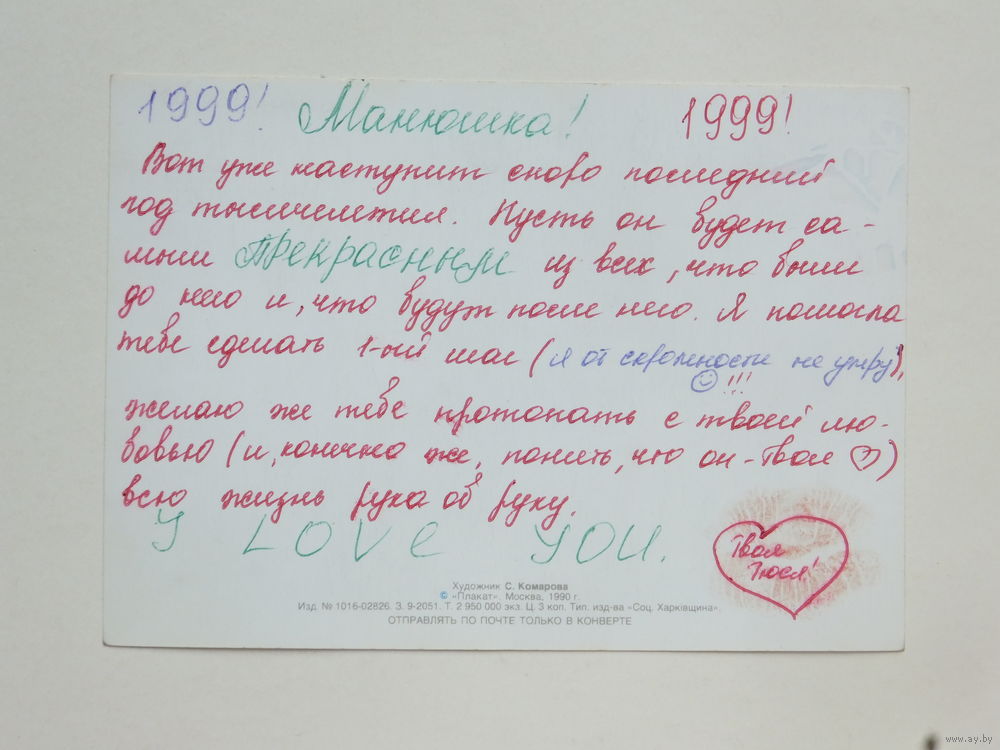 1999! Манюшка! 1999!
Вот уже наступит скоро последний
год тысячелетия. Пусть он будет са-
мым Прекрасным из всех, что были
до него и, что будут после него. Я помогла
тебе сделать 1-ый шаг (я от скромности не умру),
!!!
желаю же тебе протопать с твоей лю-
бовью (и, конечно же, помнить, что он - твоя ♡)
всю жизнь рука об руку.
I LOVE YOU.
Твоя
Тюся!
Художник С. Комарова
© «Плакат». Москва, 1990 г.
Изд. № 1016-02826. З. 9-2051. Т. 2 950 000 экз. Ц. 3 коп. Тип. изд-ва «Соц. Харкiвщина».
ОТПРАВЛЯТЬ ПО ПОЧТЕ ТОЛЬКО В КОНВЕРТЕ
www.ay.by